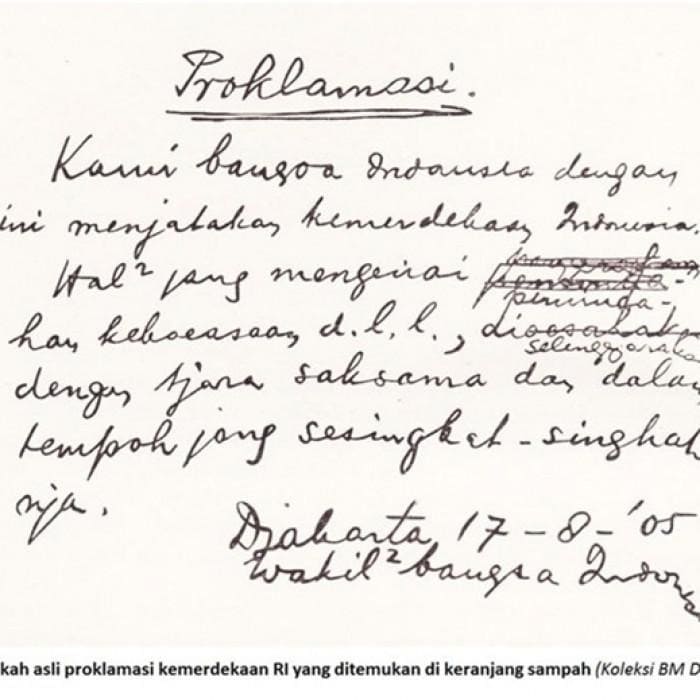 Proklamasi.
Kami bangsa Indonesia dengan
ini menjatakan kemerdekaan Indonesia.
Hal² jang mengenai
peminda-
han kekoeasaan d.l.l.,
dengan tjara saksama dan dalam
tempoh jang sesingkat-singkat
nja.
Djakarta 17 - 8 - '05
Wakil² bangsa Indon
kah asli proklamasi kemerdekaan RI yang ditemukan di keranjang sampah (Koleksi BM D